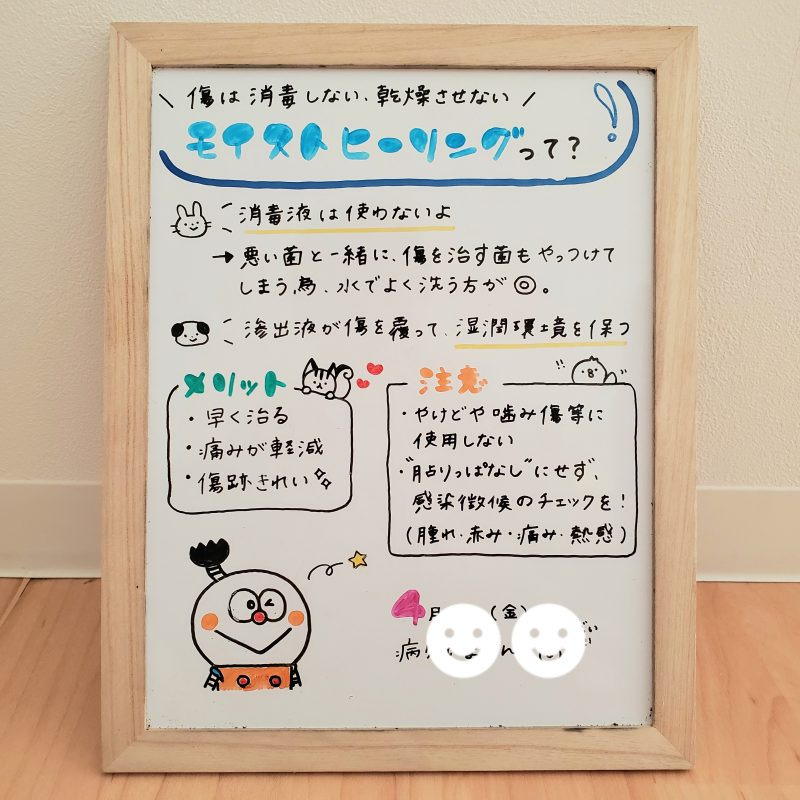 \ 傷は消毒しない、乾燥させない /
モイストヒーリングって?!
消毒液は使わないよ
→ 悪い菌と一緒に、傷を治す菌もやっつけて
しまう為、水でよく洗う方が◎。
滲出液が傷を覆って、湿潤環境を保つ
メリット
・早く治る
・痛みが軽減
・傷跡きれい
注意
・やけどや噛み傷等に
使用しない
・"貼りっぱなし"にせず、
感染徴候のチェックを!
(腫れ・赤み・痛み・熱感)
4月 (金)
病